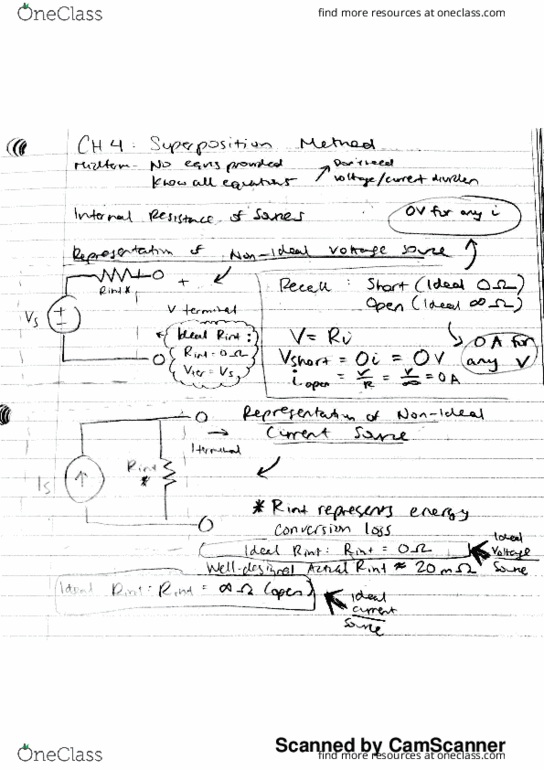 OneClass
find more resources at oneclass.com
CH 4: Superposition Method
Midterm- No eqns provided
Know all equations
Don't need
voltage/current division
Internal Resistance of Sources
0V for any i
Representation of Non-Ideal Voltage Source
Rint*
+
Vs
V terminal
Ideal Rint:
Rint = 0Ω
Vter = Vs
Recall: Short (Ideal 0Ω)
Open (Ideal ∞Ω)
V = Ri
Vshort = 0i = 0V
i open = V/R = V/∞ = 0A
0 A for
any V
Representation of Non-Ideal
Current Source
I terminal
Rint
*
Is
* Rint represents energy
conversion loss
Ideal Rint: Rint = 0Ω
Ideal
Voltage
Source
Well-designed Actual Rint ≈ 20mΩ
Ideal Rint: Rint = ∞Ω (open)
Ideal
current
Source
Scanned by CamScanner
OneClass
find more resources at oneclass.com